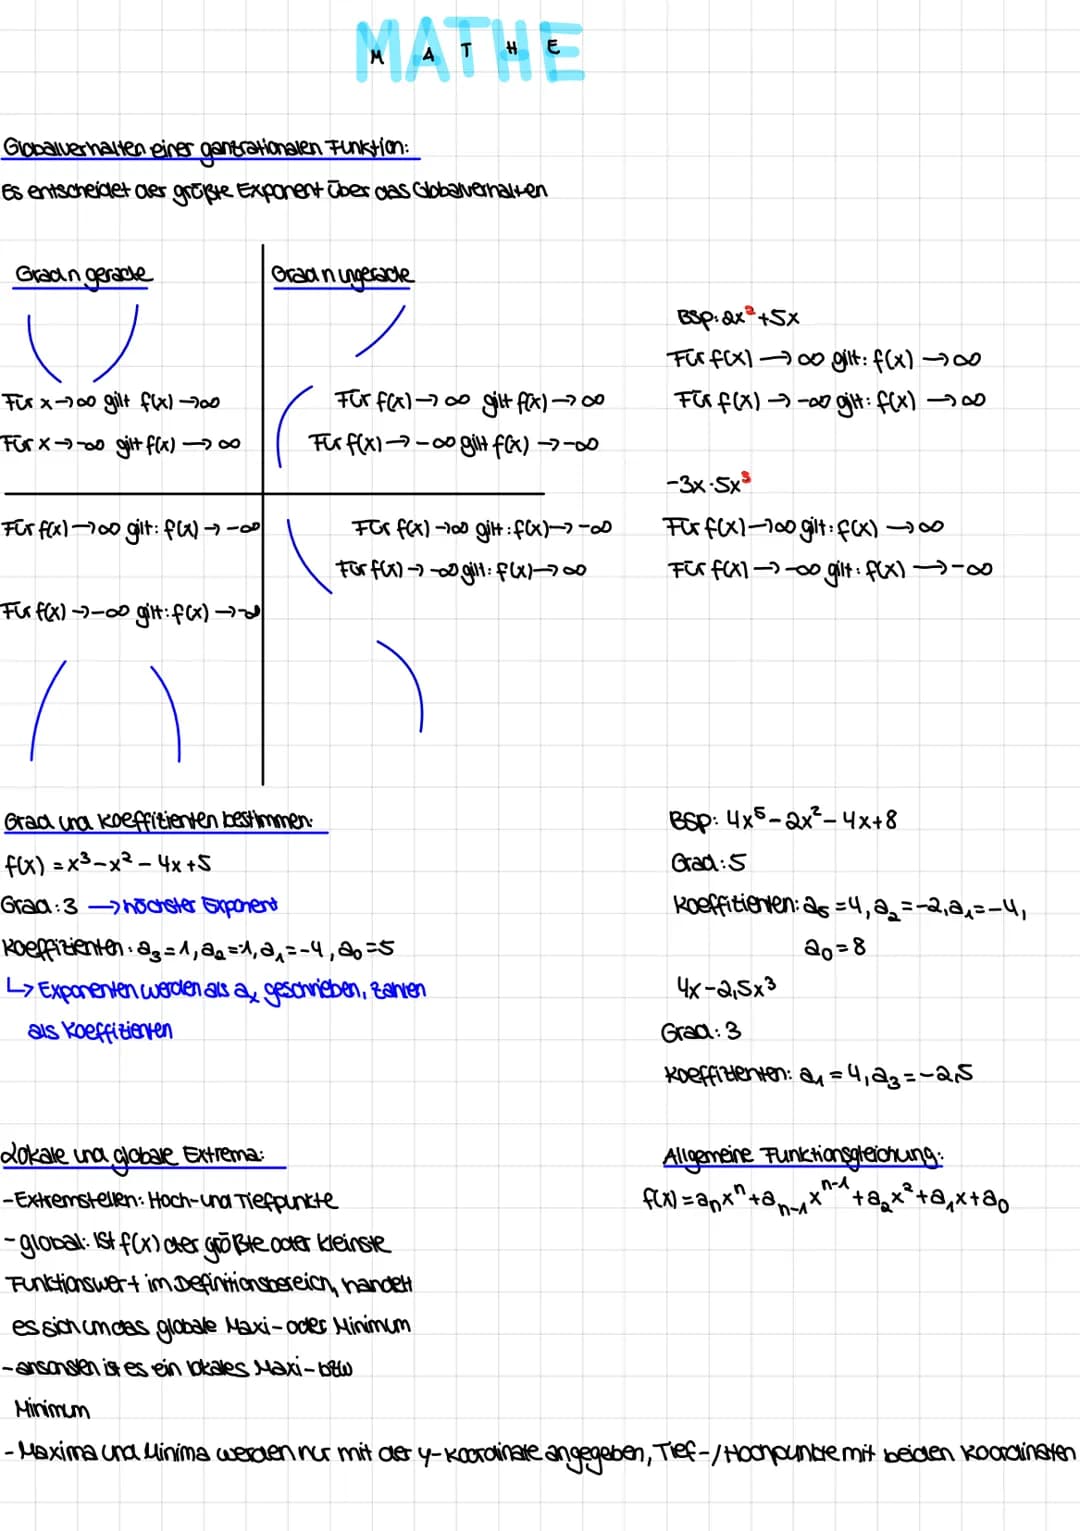 MATHE
MATHE
Globalverhalten einer ganzrationalen Funktion:
Es entscheidet der größte Exponent über das Globalverhalten
Grad n gerade
Grad n ungerade
Für x→∞ gilt f(x)→∞
Für x→-∞ gilt f(x)→∞
Für f(x)→∞ gilt f(x)→∞
Für f(x)→-∞ gilt f(x)→-∞
Für f(x)→∞ gilt: f(x)→-∞
Für f(x)→-∞ gilt: f(x)→-∞
Für f(x)→∞ gilt: f(x)→-∞
Für f(x)→-∞ gilt: f(x)→∞
BSP: 2x²+5x
Für f(x)→∞ gilt: f(x)→∞
Für f(x)→-∞ gilt: f(x)→∞
-3x·5x³
Für f(x)→∞ gilt: f(x)→∞
Für f(x)→-∞ gilt: f(x)→-∞
Grad und Koeffizienten bestimmen:
f(x)=x³-x²-4x+5
Grad: 3 → höchster Exponent
Koeffizienten: a₃=1, a₂=-1, a₁=-4, a₀=5
↳ Exponenten werden als aₓ geschrieben, Zahlen
als Koeffizienten
BSP: 4x⁵-2x²-4x+8
Grad: 5
Koeffizienten: a₅=4, a₂=-2, a₁=-4,
a₀=8
4x-2,5x³
Grad: 3
Koeffizienten: a₁=4, a₃=-2,5
Lokale und globale Extrema:
-Extremstellen: Hoch- und Tiefpunkte
-global: Ist f(x) der größte oder kleinste
Funktionswert im Definitionsbereich, handelt
es sich um das globale Maxi- oder Minimum
-ansonsten ist es ein lokales Maxi- bzw
Minimum
-Maxima und Minima werden nur mit der y-Koordinate angegeben, Tief-/Hochpunkte mit beiden Koordinaten
Allgemeine Funktionsgleichung:
f(x)=aₙxⁿ+aₙ₋₁xⁿ⁻¹+a₂x²+a₁x+a₀